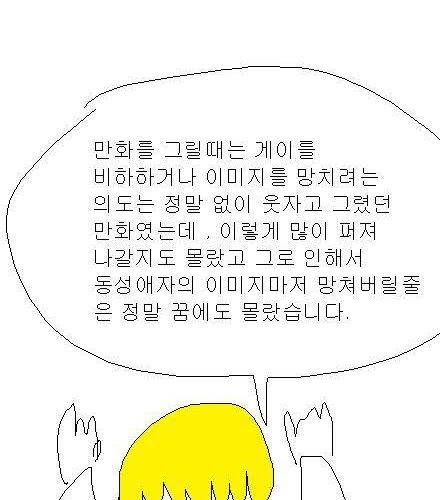 만화를 그릴때는 게이를
비하하거나 이미지를 망치려는
의도는 정말 없이 웃자고 그렸던
만화였는데 . 이렇게 많이 퍼져
나갈지도 몰랐고 그로 인해서
동성애자의 이미지마저 망쳐버릴줄
은 정말 꿈에도 몰랐습니다.